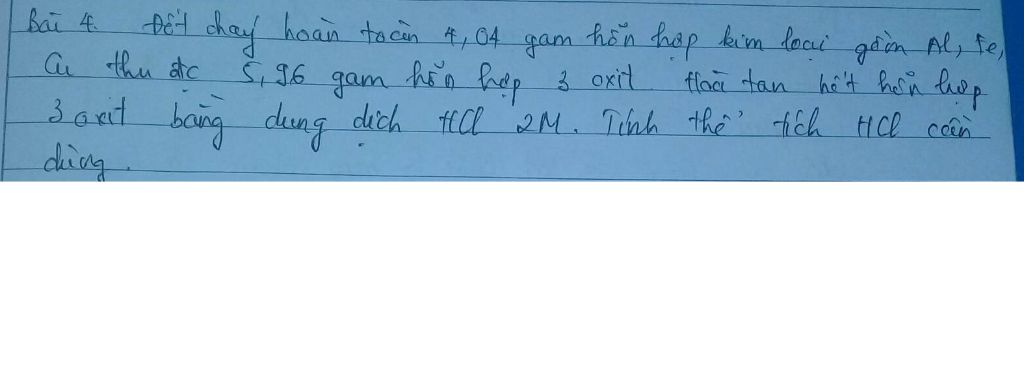 Bài 4. Đốt cháy hoàn toàn 4,04 gam hỗn hợp kim loại gồm Al, Fe,
Cu thu đc 5,96 gam hỗn hợp 3 oxit Hoà tan hết hỗn hợp
3 oxit bằng dung dịch HCl 2M. Tính thể tích HCl cần
dùng.